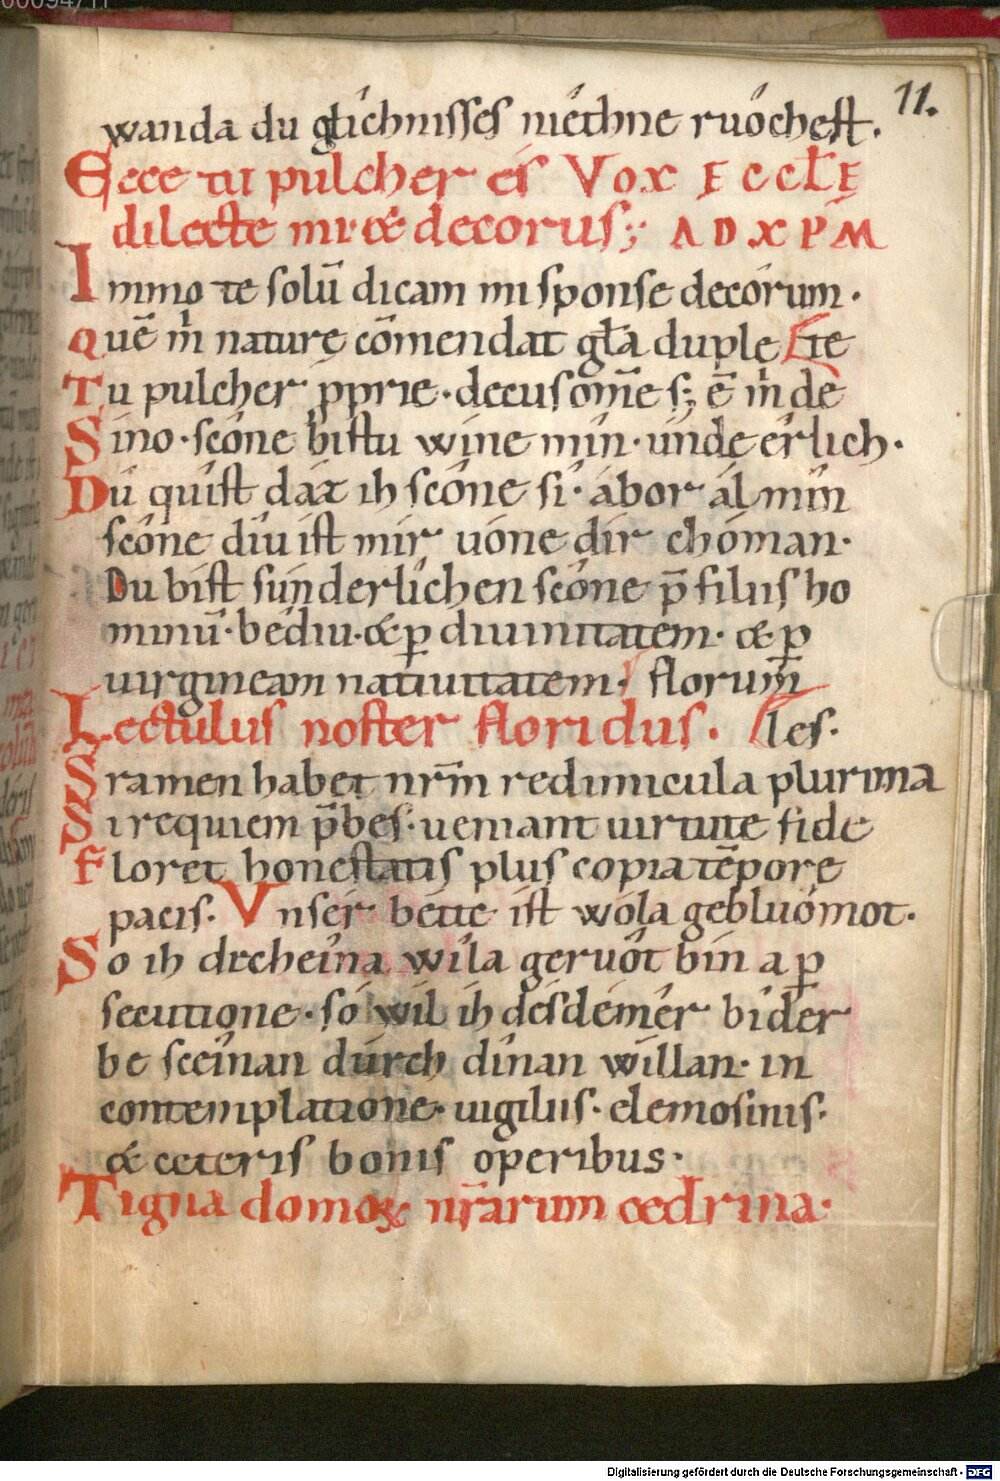 11.
wanda du glíchnisses niéthne ruócheſt.
Ecce tu pulcher eſ Vox ECCLĘ
dilecte mi · & decorus; AD XPM
Immo te solū dicam mi sponse decórum.
Quē m̄ naturę cōmendat gła duplę
te
Tu pulcher pprie · decus om̄e s; ē m̄ de
Sino · scóne biſtu wine min · únde érlich.
Dú quiſt daz ih scóne si · ábor ál mín
scóne díu iſt mir uóne dir chóman.
Du biſt súnderlíchen scóne p̄ filiis ho
minū · bédiu · & p diuinitatem · & p
uirgineam natiuitatem. florum
Lectulus noſter floridus.
les.
Stramen habet nrm̄ redimicula plurima
Si requiem p̄bes · ueniant uirtute fide
Floret honeſtatis plus copia tēpore
pacis. Vnser bétte iſt wóla geblúomot.
So ih dechéina wíla gerúot bin a p
secutione · só wil ih desdemér bider
be scéinan dúrch dínan wíllan · in
contemplatione · uigiliis · elemosinis.
& ceteris bonis operibus.
Tigna domoꝝ nr̄arum cedrina.
Digitalisierung gefördert durch die Deutsche Forschungsgemeinschaft - DFG